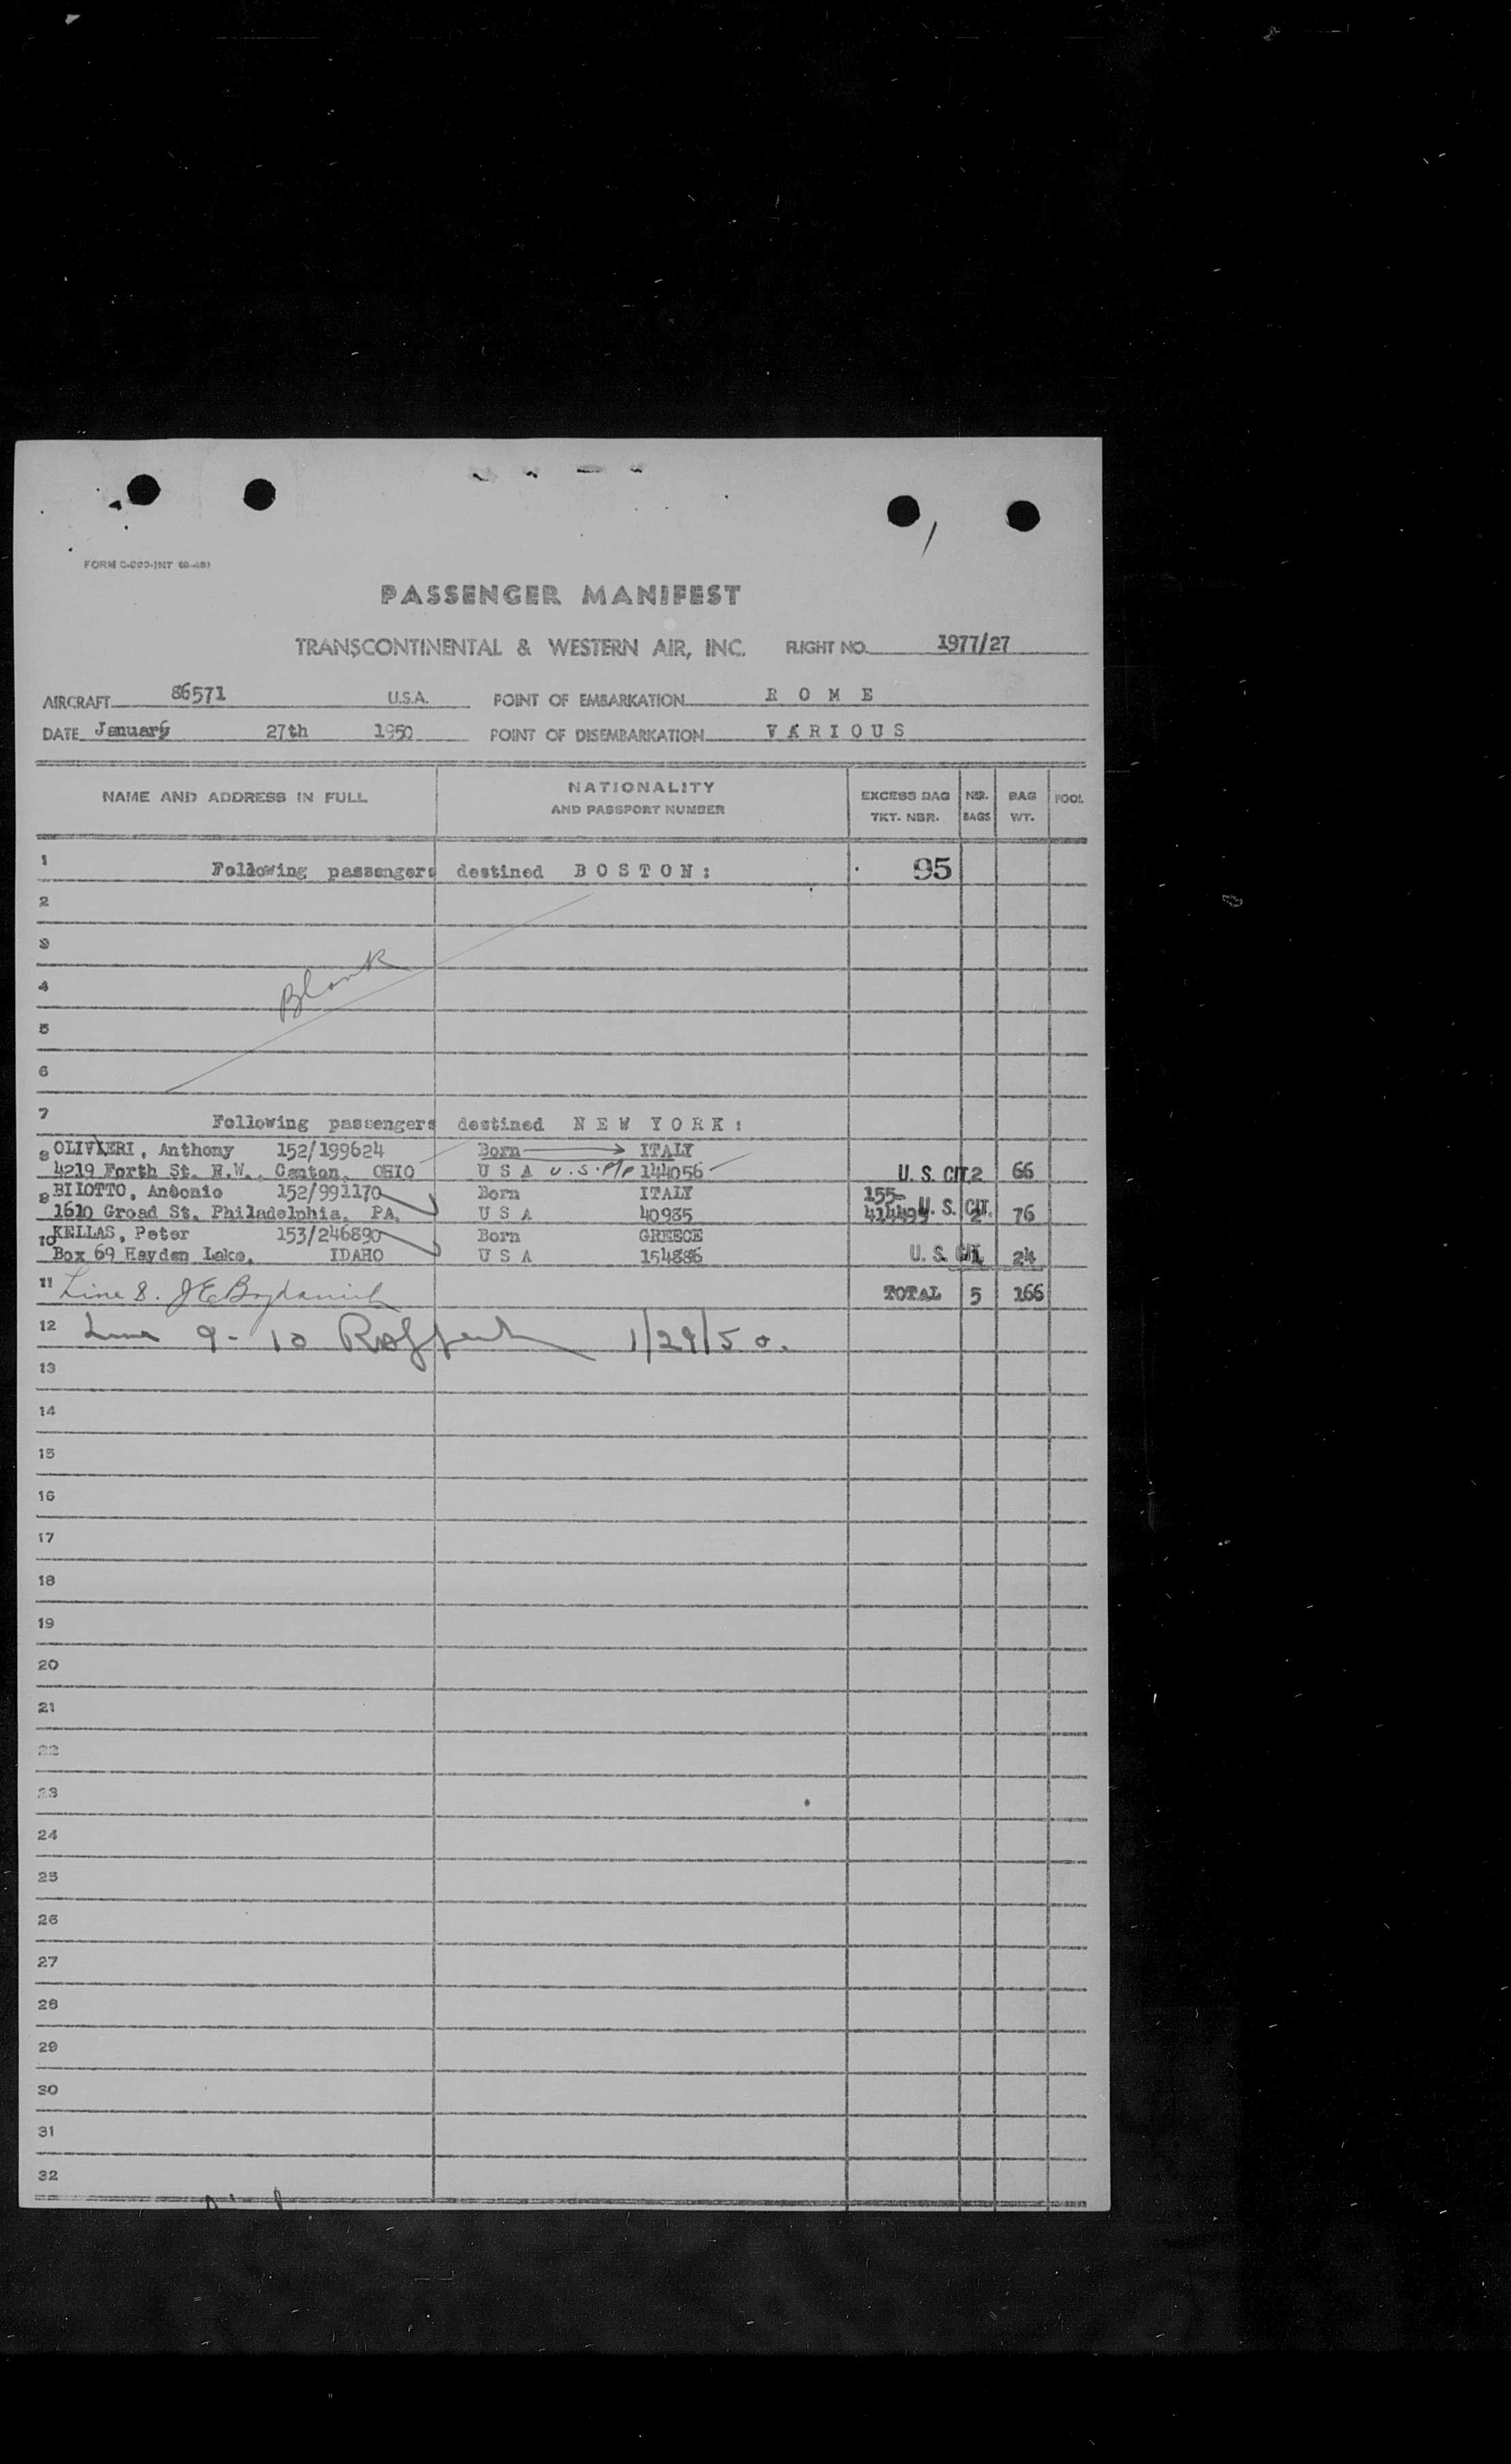 PASSENGER MANIFEST
TRANSCONTINENTAL & WESTERN AIR, INC. FLIGHT NO. 1977/27
AIRCRAFT 86571 U.S.A. POINT OF EMBARKATION R O M E
DATE January 27th 1950 POINT OF DISEMBARKATION V A R I O U S
NAME AND ADDRESS IN FULL NATIONALITY AND PASSPORT NUMBER EXCESS BAG TKT. NBR. NBR. BAGS BAG WT. POOL
1 Following passengers destined B O S T O N : 95
2
3
4 Blank
5
6
7 Following passengers destined N E W Y O R K :
8 OLIVIERI, Anthony 152/199624 Born ITALY
4219 Forth St. N.W., Canton, OHIO U S A U.S. P/P 144056 U. S. CIT. 2 66
9 BILOTTO, Antonio 152/991170 Born ITALY 155-
1610 Groad St. Philadelphia, PA. U S A 40985 414499 U. S. CIT. 2 76
10 KELLAS, Peter 153/246890 Born GREECE
Box 69 Hayden Lake, IDAHO U S A 154886 U. S. CIT. 1 24
11 Line 8. TOTAL 5 166
12 Line 9-10 1/29/50.
13
14
15
16
17
18
19
20
21
22
23
24
25
26
27
28
29
30
31
32